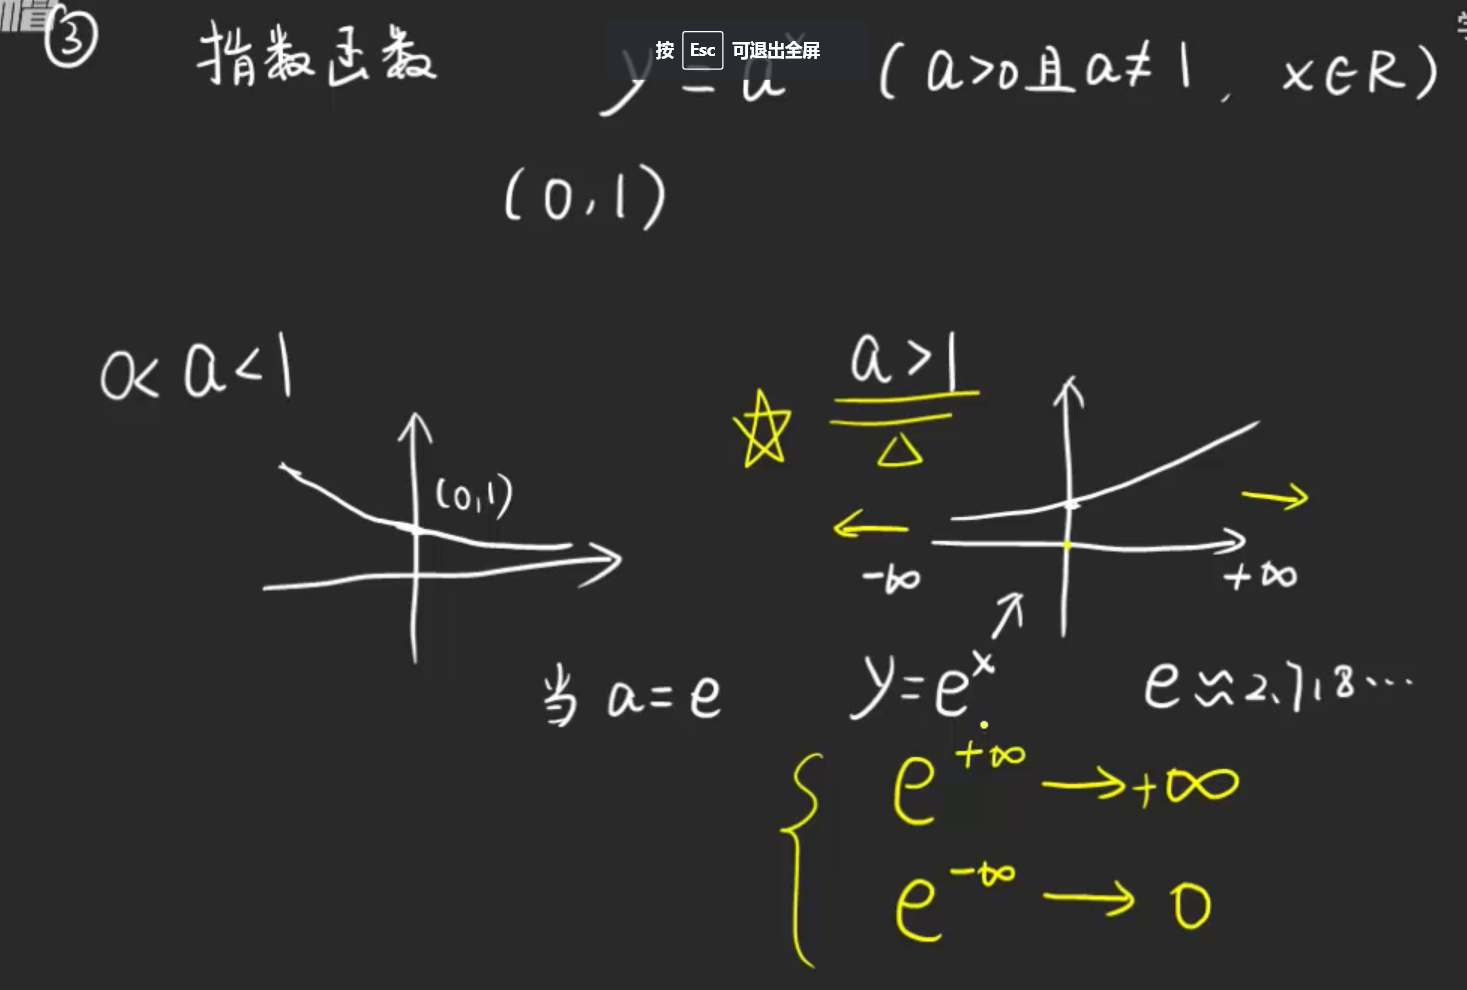 ③ 指数函数 y = aˣ (a>0且a≠1, x∈R)
按 Esc 可退出全屏
(0,1)
0<a<1
a>1
(0,1)
-∞ +∞
当 a=e y=eˣ e≈2.718…
e^{+∞} → +∞
e^{-∞} → 0